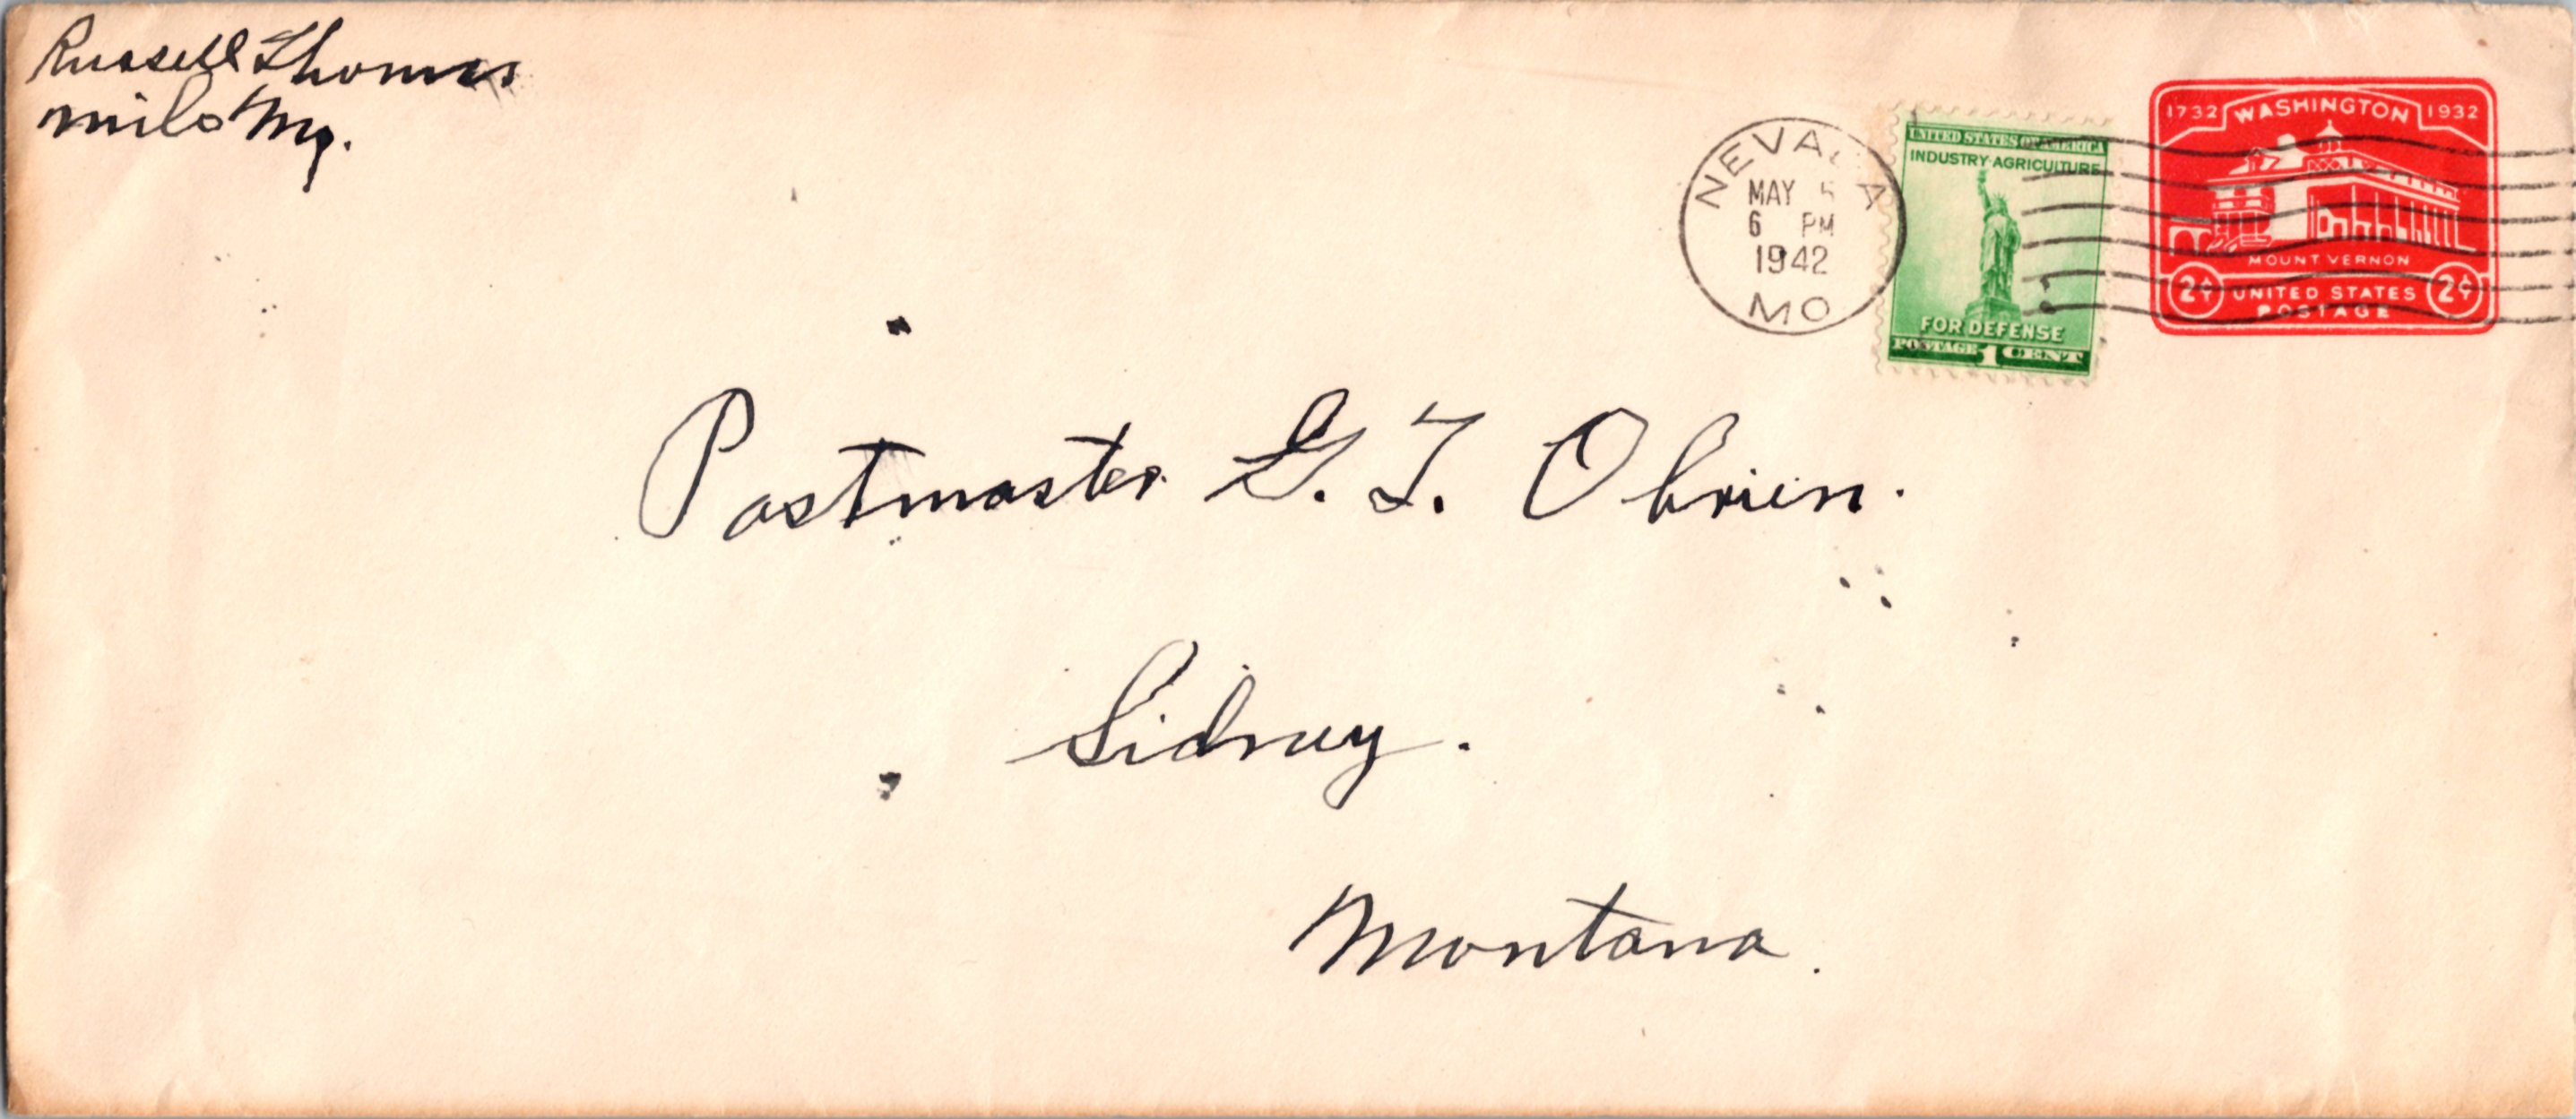 Russell Thomas
Milo Mo.
NEVADA
MAY 5
6 PM
1942
MO
UNITED STATES OF AMERICA
INDUSTRY·AGRICULTURE
FOR DEFENSE
POSTAGE 1 CENT
1732 WASHINGTON 1932
MOUNT VERNON
2¢ UNITED STATES 2¢
POSTAGE
Postmaster G. T. Obrien.
Sidney.
Montana.